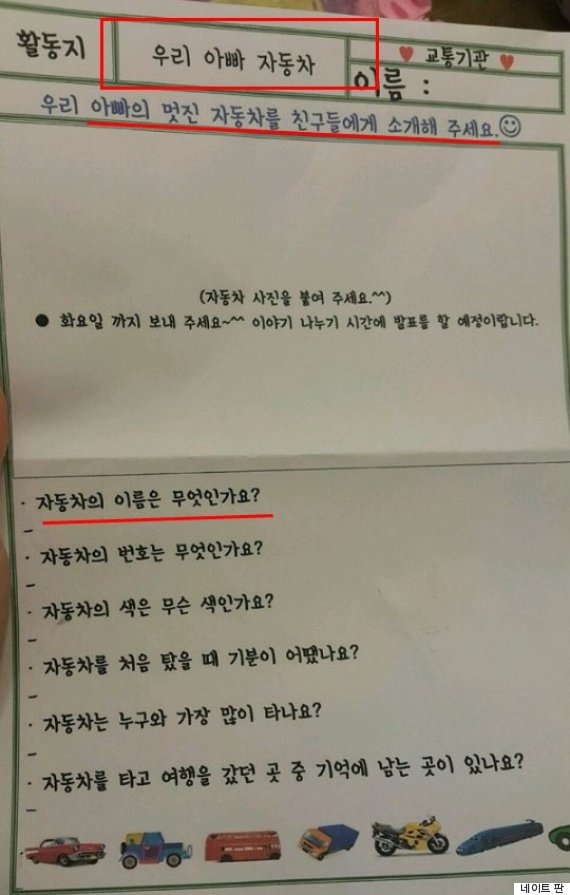 활동지
우리 아빠 자동차
♥ 교통기관 ♥
이름 :
우리 아빠의 멋진 자동차를 친구들에게 소개해 주세요.☺
(자동차 사진을 붙여 주세요.^^)
● 화요일 까지 보내 주세요~^^ 이야기 나누기 시간에 발표를 할 예정이랍니다.
· 자동차의 이름은 무엇인가요?
-
· 자동차의 번호는 무엇인가요?
-
· 자동차의 색은 무슨 색인가요?
-
· 자동차를 처음 탔을 때 기분이 어땠나요?
-
· 자동차는 누구와 가장 많이 타나요?
-
· 자동차를 타고 여행을 갔던 곳 중 기억에 남는 곳이 있나요?
-
네이트 판